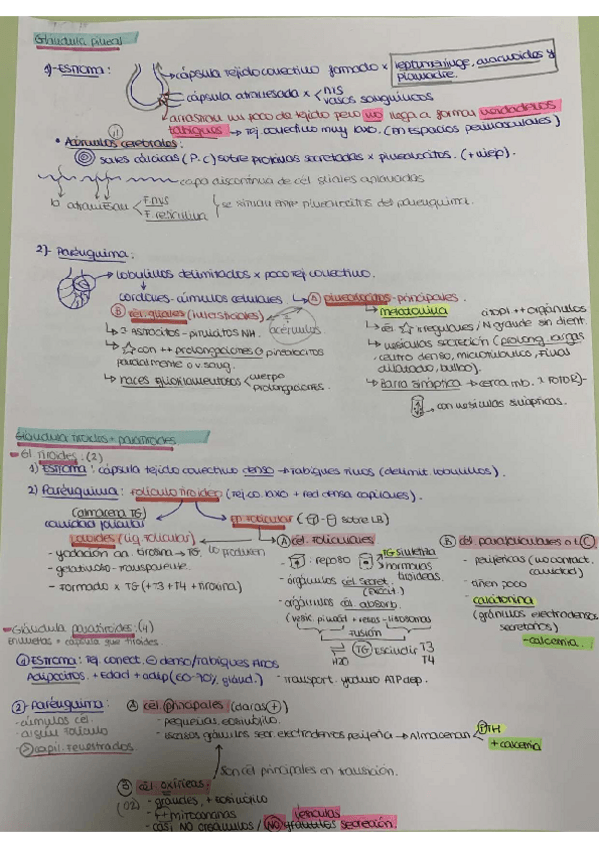 Glándula pineal
1)-ESTROMA:
cápsula tejido conectivo formado x leptomeninge, aracnoides y piamadre.
cápsula atravesada x < nvs
vasos sanguíneos
arrastran un poco de tejido pero no llega a formar verdaderos
tabiques → Tej conectivo muy laxo. (en espacios perivasculares)
• Acérvulos cerebrales:
sales cálcicas (P.C) sobre proteínas secretadas x pinealocitos. (+ viejo).
capa discontinua de cél gliales aplanadas
lo atraviesan F. nvs
F. reticulina
se sitúan entre pinealocitos del parénquima.
2)- Parénquima:
lobulillos delimitados x poco tej conectivo.
cordones - cúmulos celulares. → A pinealocitos - principales.
B cél. gliales (intersticiales)
melatonina
citopl ++ orgánulos
acérvulos
↳ 3 Astrocitos - pituicitos NH.
↳ es ☆ irregulares / N grande sin dient.
↳ ☆ con ++ prolongaciones pinealocitos
parcialmente o v sang.
↳ vesículas secreción (prolong. largas
, centro denso, microtúbulos, final
dilatado, bulbo).
↳ haces gliofilamentosos < cuerpo
prolongaciones.
↳ Barra sináptica → cerca mb. x FOTOR)-
con vesículas sinápticas.
Glándula tiroides + paratiroides
- Gl. tiroides: (2)
1) ESTROMA: cápsula tejido conectivo denso → tabiques finos (delimit. lobulillos).
2) Parénquima: folículo tiroideo (Tej co. laxo + red densa capilares).
(almacena TG)
cavidad folicular
ep. folicular ( sobre LB)
Coloides (liq. folicular)
A cél. foliculares
B cél parafoliculares o C
- yodación an. tirosina → TG. lo producen
- gelatinoso - transparente
- Formado x TG (+T3 + T4 + tirosina)
: reposo
TG sintetiza
hormonas
tiroideas.
- orgánulos cél secret.
- orgánulos cél absorb.
(vesic pinocit + resos - lisosomas
fusión
H2O
TG Escindir T3
T4
- Transport. yoduro ATP dep.
- periféricas (no contact.
cavidad)
- tiñen poco
- calcitonina
(gránulos electrodensos
secretorios)
- calcemia.
- Glándula paratiroides: (4)
Envueltas x cápsula gl. tiroides.
1) ESTROMA: Tej. conect. ⊖ denso / tabiques finos
Adipocitos. + Edad + adip (60-70% gland.)
2- Parénquima:
- cúmulos cél.
- algún folículo
- capil. fenestrados.
A cél. principales (claras +)
- pequeñas, eosinófilo.
- escasos gránulos secr electrodensos periferia → Almacenan < PTH
+ calcemia
son cél principales en transición.
B cél. oxífilas:
(O2)
- grandes, + eosinófilo
- ++ mitocondrias
- casi NO orgánulos / NO gránulos secreción.
vesículas